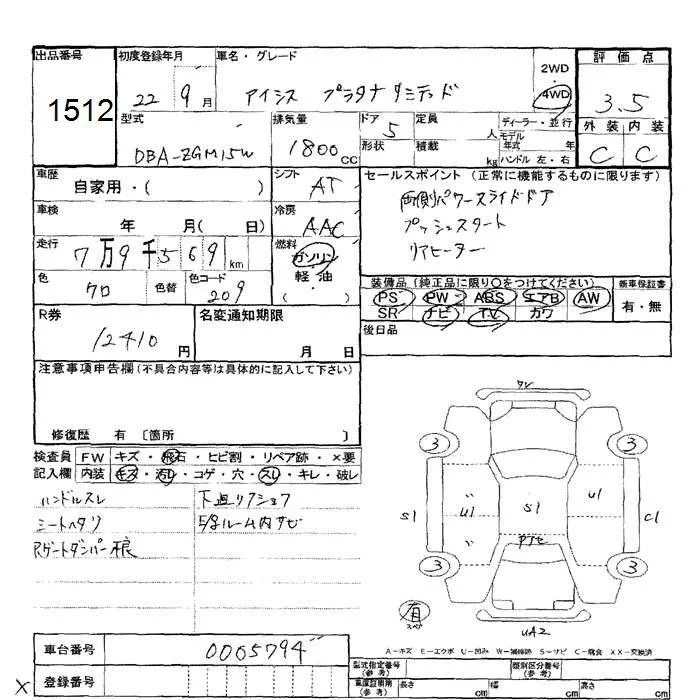 出品番号
1512
初度登録年月
22 9月
車名・グレード
アイシス プラタナ リミテッド
2WD
4WD
評価点
3.5
外装 内装
C C
型式
DBA-ZGM15W
排気量
1800cc
ドア
5
形状
定員
人
積載
kg
ディーラー・並行
モデル
年式 年
ハンドル 左・右
車歴
自家用・( )
シフト
AT
車検
年 月( 日)
冷房
AAC
走行
7万9千569km
燃料
ガソリン
軽油
( )
色
クロ
色替
色コード
209
セールスポイント (正常に機能するものに限ります)
両側パワースライドドア
プッシュスタート
リアヒーター
装備品(純正品に限り○をつけてください)
新車保証書
PS PW ABS エアB AW
SR ナビ TV カワ
有・無
後日品
R券
12410円
名変通知期限
月 日
注意事項申告欄(不具合内容等は具体的に記入して下さい)
修復歴 有 〔箇所 〕
検査員
記入欄
FW キズ・飛石・ヒビ割・リペア跡・×要
内装 キズ・汚れ・コゲ・穴・スレ・キレ・破レ
ハンドルスレ
シートヘタリ
Rゲートダンパー不良
下廻リアショウ
ルーム内サビ
ワレ
3 3
S1 U1 S1 U1 C1
3 3
有
スペア
UA2
A－キズ E－エクボ U－凹み W－補修跡 S－サビ C－腐食 XX－交換済
車台番号
0005794
登録番号
X
型式指定番号
(参考)
類別区分番号
(参考)
(参考)
長さ cm
幅 cm
高さ cm